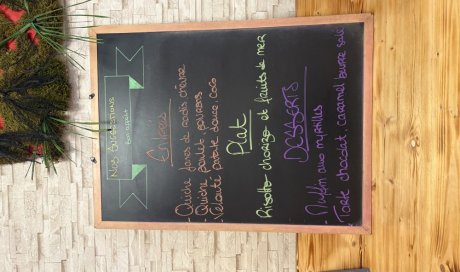 Nos Suggestions
Bon appétit
Entrées
- Quiche fanes de radis chèvre
- Quiche poulet poivrons
- Velouté patate douce, coco
Plat
Risotto chorizo et fruits de mer
DESSERTS
- Muffin aux myrtilles
- Tarte chocolat, caramel beurre salé